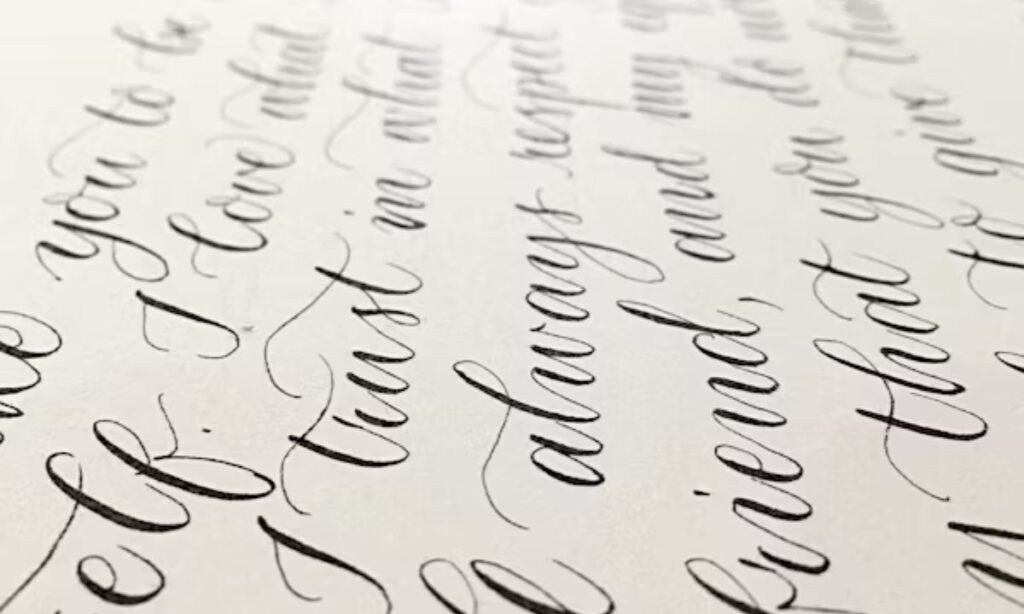 you to be
I love what
I trust in what
always respect
friend, and my
that you do
to give